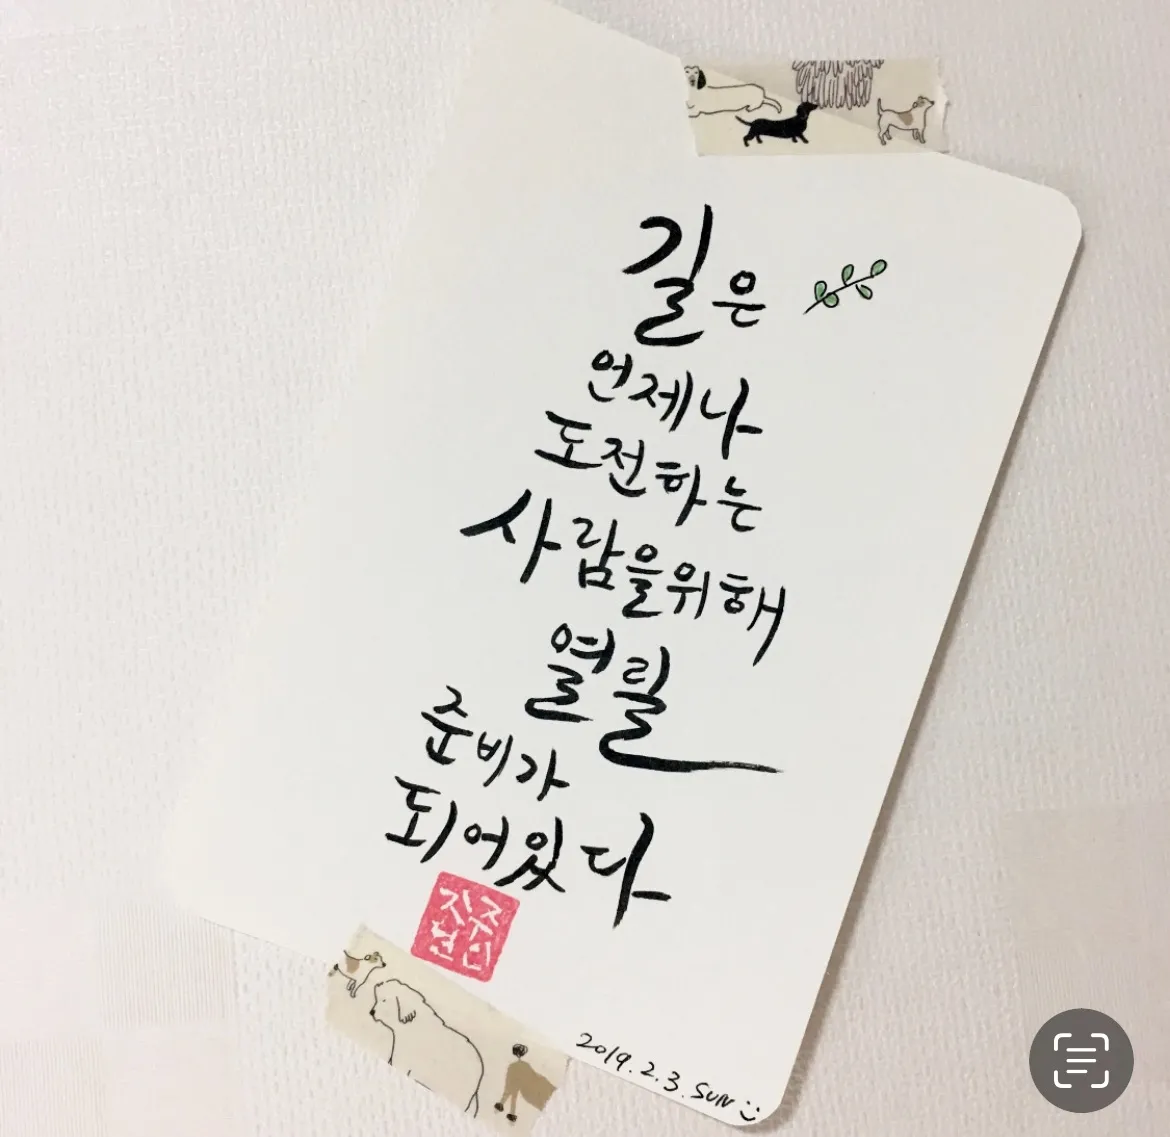 길은
언제나
도전하는
사람을위해
열릴
준비가
되어있다
2019.2.3.SUN